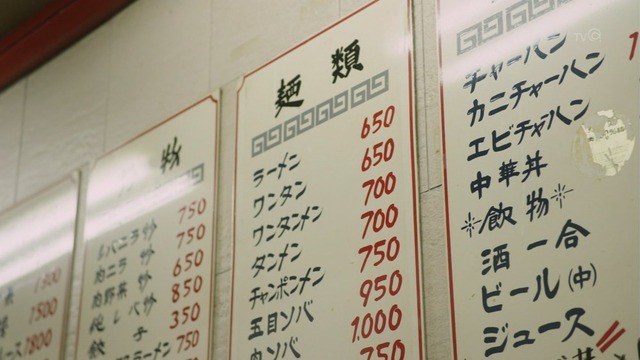 1500
ス1800
物
レバニラ炒 750
肉ニラ炒 750
肉野菜炒 650
純レバ炒 850
餃子 350
ラーメン 750
麺類
ラーメン 650
ワンタン 650
ワンタンメン 700
タンメン 700
チャンポンメン 750
五目ソバ 950
ソバ 1.000
750
チャーハン
カニチャーハン
エビチャーハン
中華丼
飲物
酒一合
ビール(中)
ジュース